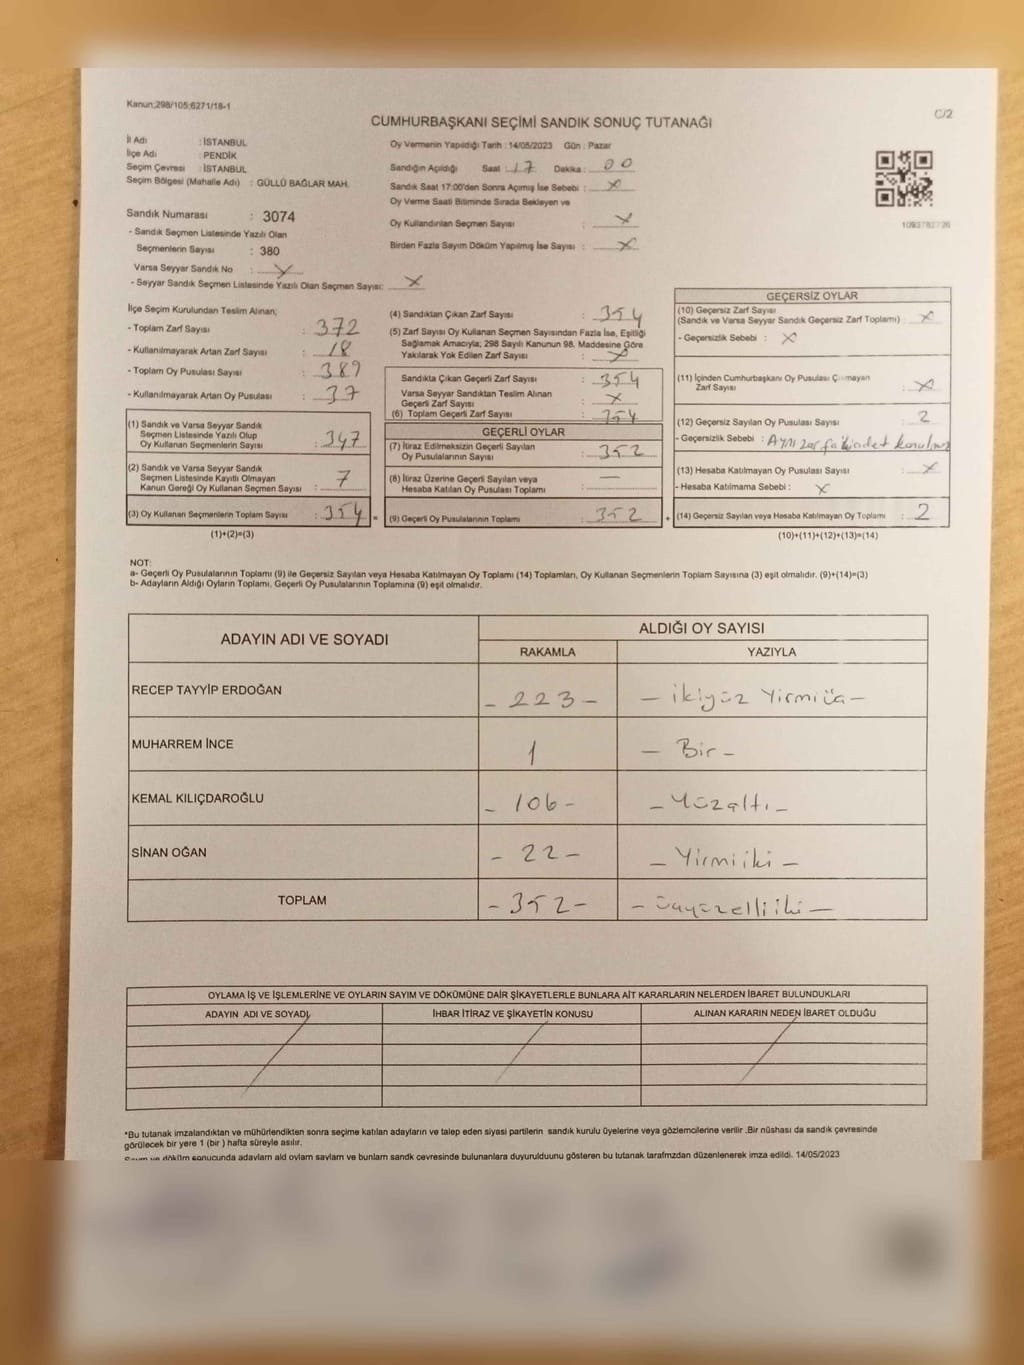 Kanun;298/105;6271/18-1
C/2
CUMHURBAŞKANI SEÇİMİ SANDIK SONUÇ TUTANAĞI
İl Adı : İSTANBUL
İlçe Adı : PENDİK
Seçim Çevresi : İSTANBUL
Seçim Bölgesi (Mahalle Adı) : GÜLLÜ BAĞLAR MAH.
Sandık Numarası : 3074
- Sandık Seçmen Listesinde Yazılı Olan
Seçmenlerin Sayısı : 380
Varsa Seyyar Sandık No : X
- Seyyar Sandık Seçmen Listesinde Yazılı Olan Seçmen Sayısı: X
Oy Vermenin Yapıldığı Tarih : 14/05/2023 Gün : Pazar
Sandığın Açıldığı Saat : 17 Dakika : 00
Sandık Saat 17:00'den Sonra Açımış İse Sebebi : X
Oy Verme Saati Bitiminde Sırada Bekleyen ve
Oy Kullandırılan Seçmen Sayısı : X
Birden Fazla Sayım Döküm Yapılmış İse Sayısı : X
1093782726
İlçe Seçim Kurulundan Teslim Alınan;
- Toplam Zarf Sayısı : 372
- Kullanılmayarak Artan Zarf Sayısı : 18
- Toplam Oy Pusulası Sayısı : 389
- Kullanılmayarak Artan Oy Pusulası : 37
(1) Sandık ve Varsa Seyyar Sandık
Seçmen Listesinde Yazılı Olup
Oy Kullanan Seçmenlerin Sayısı : 347
(2) Sandık ve Varsa Seyyar Sandık
Seçmen Listesinde Kayıtlı Olmayan
Kanun Gereği Oy Kullanan Seçmen Sayısı : 7
(3) Oy Kullanan Seçmenlerin Toplam Sayısı : 354 =
(1)+(2)=(3)
(4) Sandıktan Çıkan Zarf Sayısı : 354
(5) Zarf Sayısı Oy Kullanan Seçmen Sayısından Fazla İse, Eşitliği
Sağlamak Amacıyla; 298 Sayılı Kanunun 98. Maddesine Göre
Yakılarak Yok Edilen Zarf Sayısı : X
Sandıkta Çıkan Geçerli Zarf Sayısı : 354
Varsa Seyyar Sandıktan Teslim Alınan
Geçerli Zarf Sayısı : X
(6) Toplam Geçerli Zarf Sayısı : 354
GEÇERLİ OYLAR
(7) İtiraz Edilmeksizin Geçerli Sayılan
Oy Pusulalarının Sayısı : 352
(8) İtiraz Üzerine Geçerli Sayılan veya
Hesaba Katılan Oy Pusulası Toplamı : —
(9) Geçerli Oy Pusulalarının Toplamı : 352 +
GEÇERSİZ OYLAR
(10) Geçersiz Zarf Sayısı
(Sandık ve Varsa Seyyar Sandık Geçersiz Zarf Toplamı) : X
- Geçersizlik Sebebi : X
(11) İçinden Cumhurbaşkanı Oy Pusulası Çıkmayan
Zarf Sayısı : X
(12) Geçersiz Sayılan Oy Pusulası Sayısı : 2
- Geçersizlik Sebebi : Aynı zarfa
(13) Hesaba Katılmayan Oy Pusulası Sayısı : X
- Hesaba Katılmama Sebebi : X
(14) Geçersiz Sayılan veya Hesaba Katılmayan Oy Toplamı : 2
(10)+(11)+(12)+(13)=(14)
NOT:
a- Geçerli Oy Pusulalarının Toplamı (9) ile Geçersiz Sayılan veya Hesaba Katılmayan Oy Toplamı (14) Toplamları, Oy Kullanan Seçmenlerin Toplam Sayısına (3) eşit olmalıdır. (9)+(14)=(3)
b- Adayların Aldığı Oyların Toplamı, Geçerli Oy Pusulalarının Toplamına (9) eşit olmalıdır.
ADAYIN ADI VE SOYADI ALDIĞI OY SAYISI
RAKAMLA YAZIYLA
RECEP TAYYİP ERDOĞAN - 223 - - ikiyüz Yirmiüç -
MUHARREM İNCE 1 - Bir -
KEMAL KILIÇDAROĞLU - 106 - - Yüzaltı -
SİNAN OĞAN - 22 - - Yirmiiki -
TOPLAM - 352 - - üçyüzelliiki -
OYLAMA İŞ VE İŞLEMLERİNE VE OYLARIN SAYIM VE DÖKÜMÜNE DAİR ŞİKAYETLERLE BUNLARA AİT KARARLARIN NELERDEN İBARET BULUNDUKLARI
ADAYIN ADI VE SOYADI İHBAR İTİRAZ VE ŞİKAYETİN KONUSU ALINAN KARARIN NEDEN İBARET OLDUĞU
*Bu tutanak imzalandıktan ve mühürlendikten sonra seçime katılan adayların ve talep eden siyasi partilerin sandık kurulu üyelerine veya gözlemcilerine verilir .Bir nüshası da sandık çevresinde
görülecek bir yere 1 (bir ) hafta süreyle asılır.
Sayım ve döküm sonucunda adayların ald oyların sayların ve bunların sandk çevresinde bulunanlara duyurulduunu gösteren bu tutanak tarafmzdan düzenlenerek imza edildi. 14/05/2023